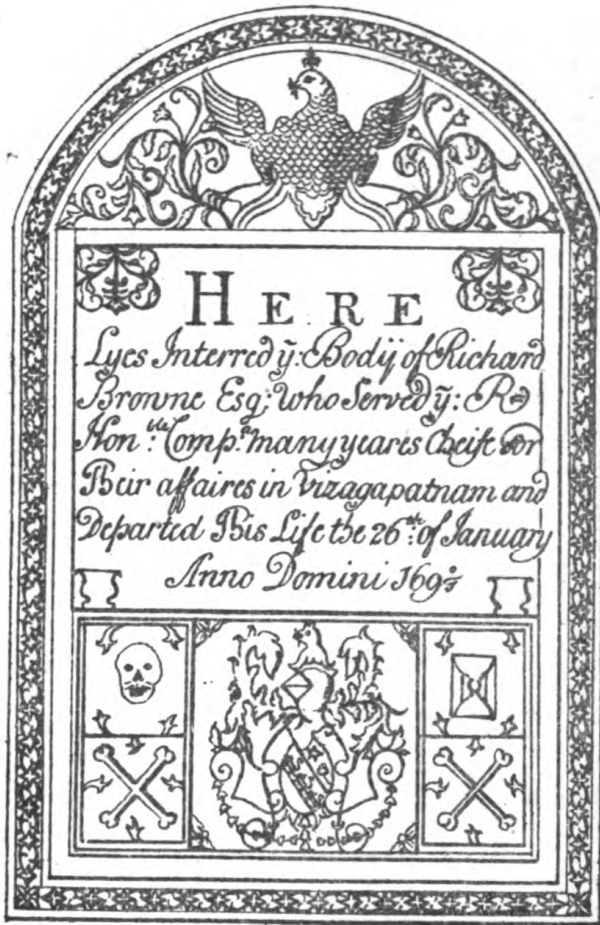 HERE
Lyes Interred ÿ: Bodÿ of Richard
Browne Esq; who Served ÿ: R
Hon.ble Comp.a many yeares Cheife for
Their affaires in Vizagapatnam and
Departed This Life the 26th: of January
Anno Domini 169